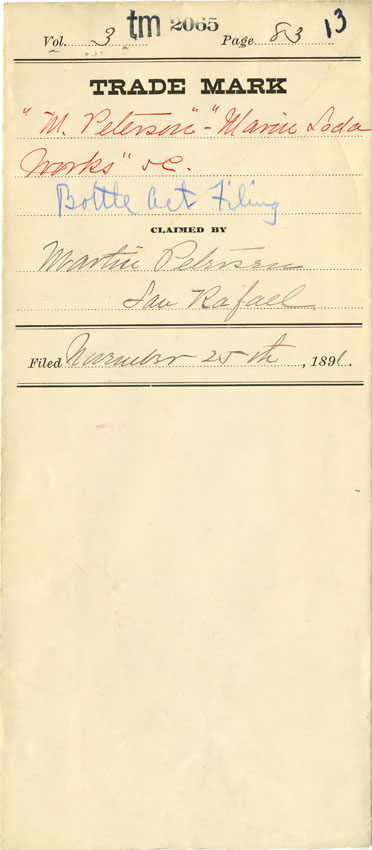 tm 2065 13
Vol. 3 Page 83
TRADE MARK
"M. Peterson" - "Marin Soda
Works" &C.
Bottle Act Filing
CLAIMED BY
Martin Petersen
San Rafael
Filed November 25th, 1891.